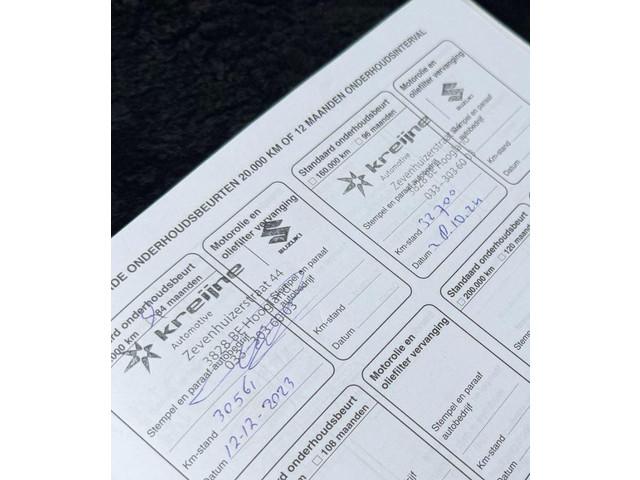 DE ONDERHOUDSBEURTEN 20.000 KM OF 12 MAANDEN ONDERHOUDSINTERVAL
ard onderhoudsbeurt
000 km
84 maanden
kreijne
Automotive
Zevenhuizerstraat 44
3828 BE Hoogland
033-303 60 03
Stempel en paraaf autobedrijf
Km-stand 30561
Datum 12-12-2023
Motorolie en
oliefilter vervanging
SUZUKI
Stempel en paraaf
autobedrijf
Km-stand
Datum
Standaard onderhoudsbeurt
160.000 km
96 maanden
kreijne
Automotive
Zevenhuizerstraat
3828 BE Hoogland
033-303 60
Stempel en paraaf autobedrijf
Km-stand 32700
Datum
Motorolie en
oliefilter vervanging
SUZUKI
Stempel
autobedrijf
Km-stand
Datum
onderhoudsbeurt
108 maanden
Motorolie en
oliefilter vervanging
Stempel en paraaf
autobedrijf
Km-stand
Datum
Standaard
200.000 km
120 maand
Stempel en
Km-stand
Motorolie
oliefilter